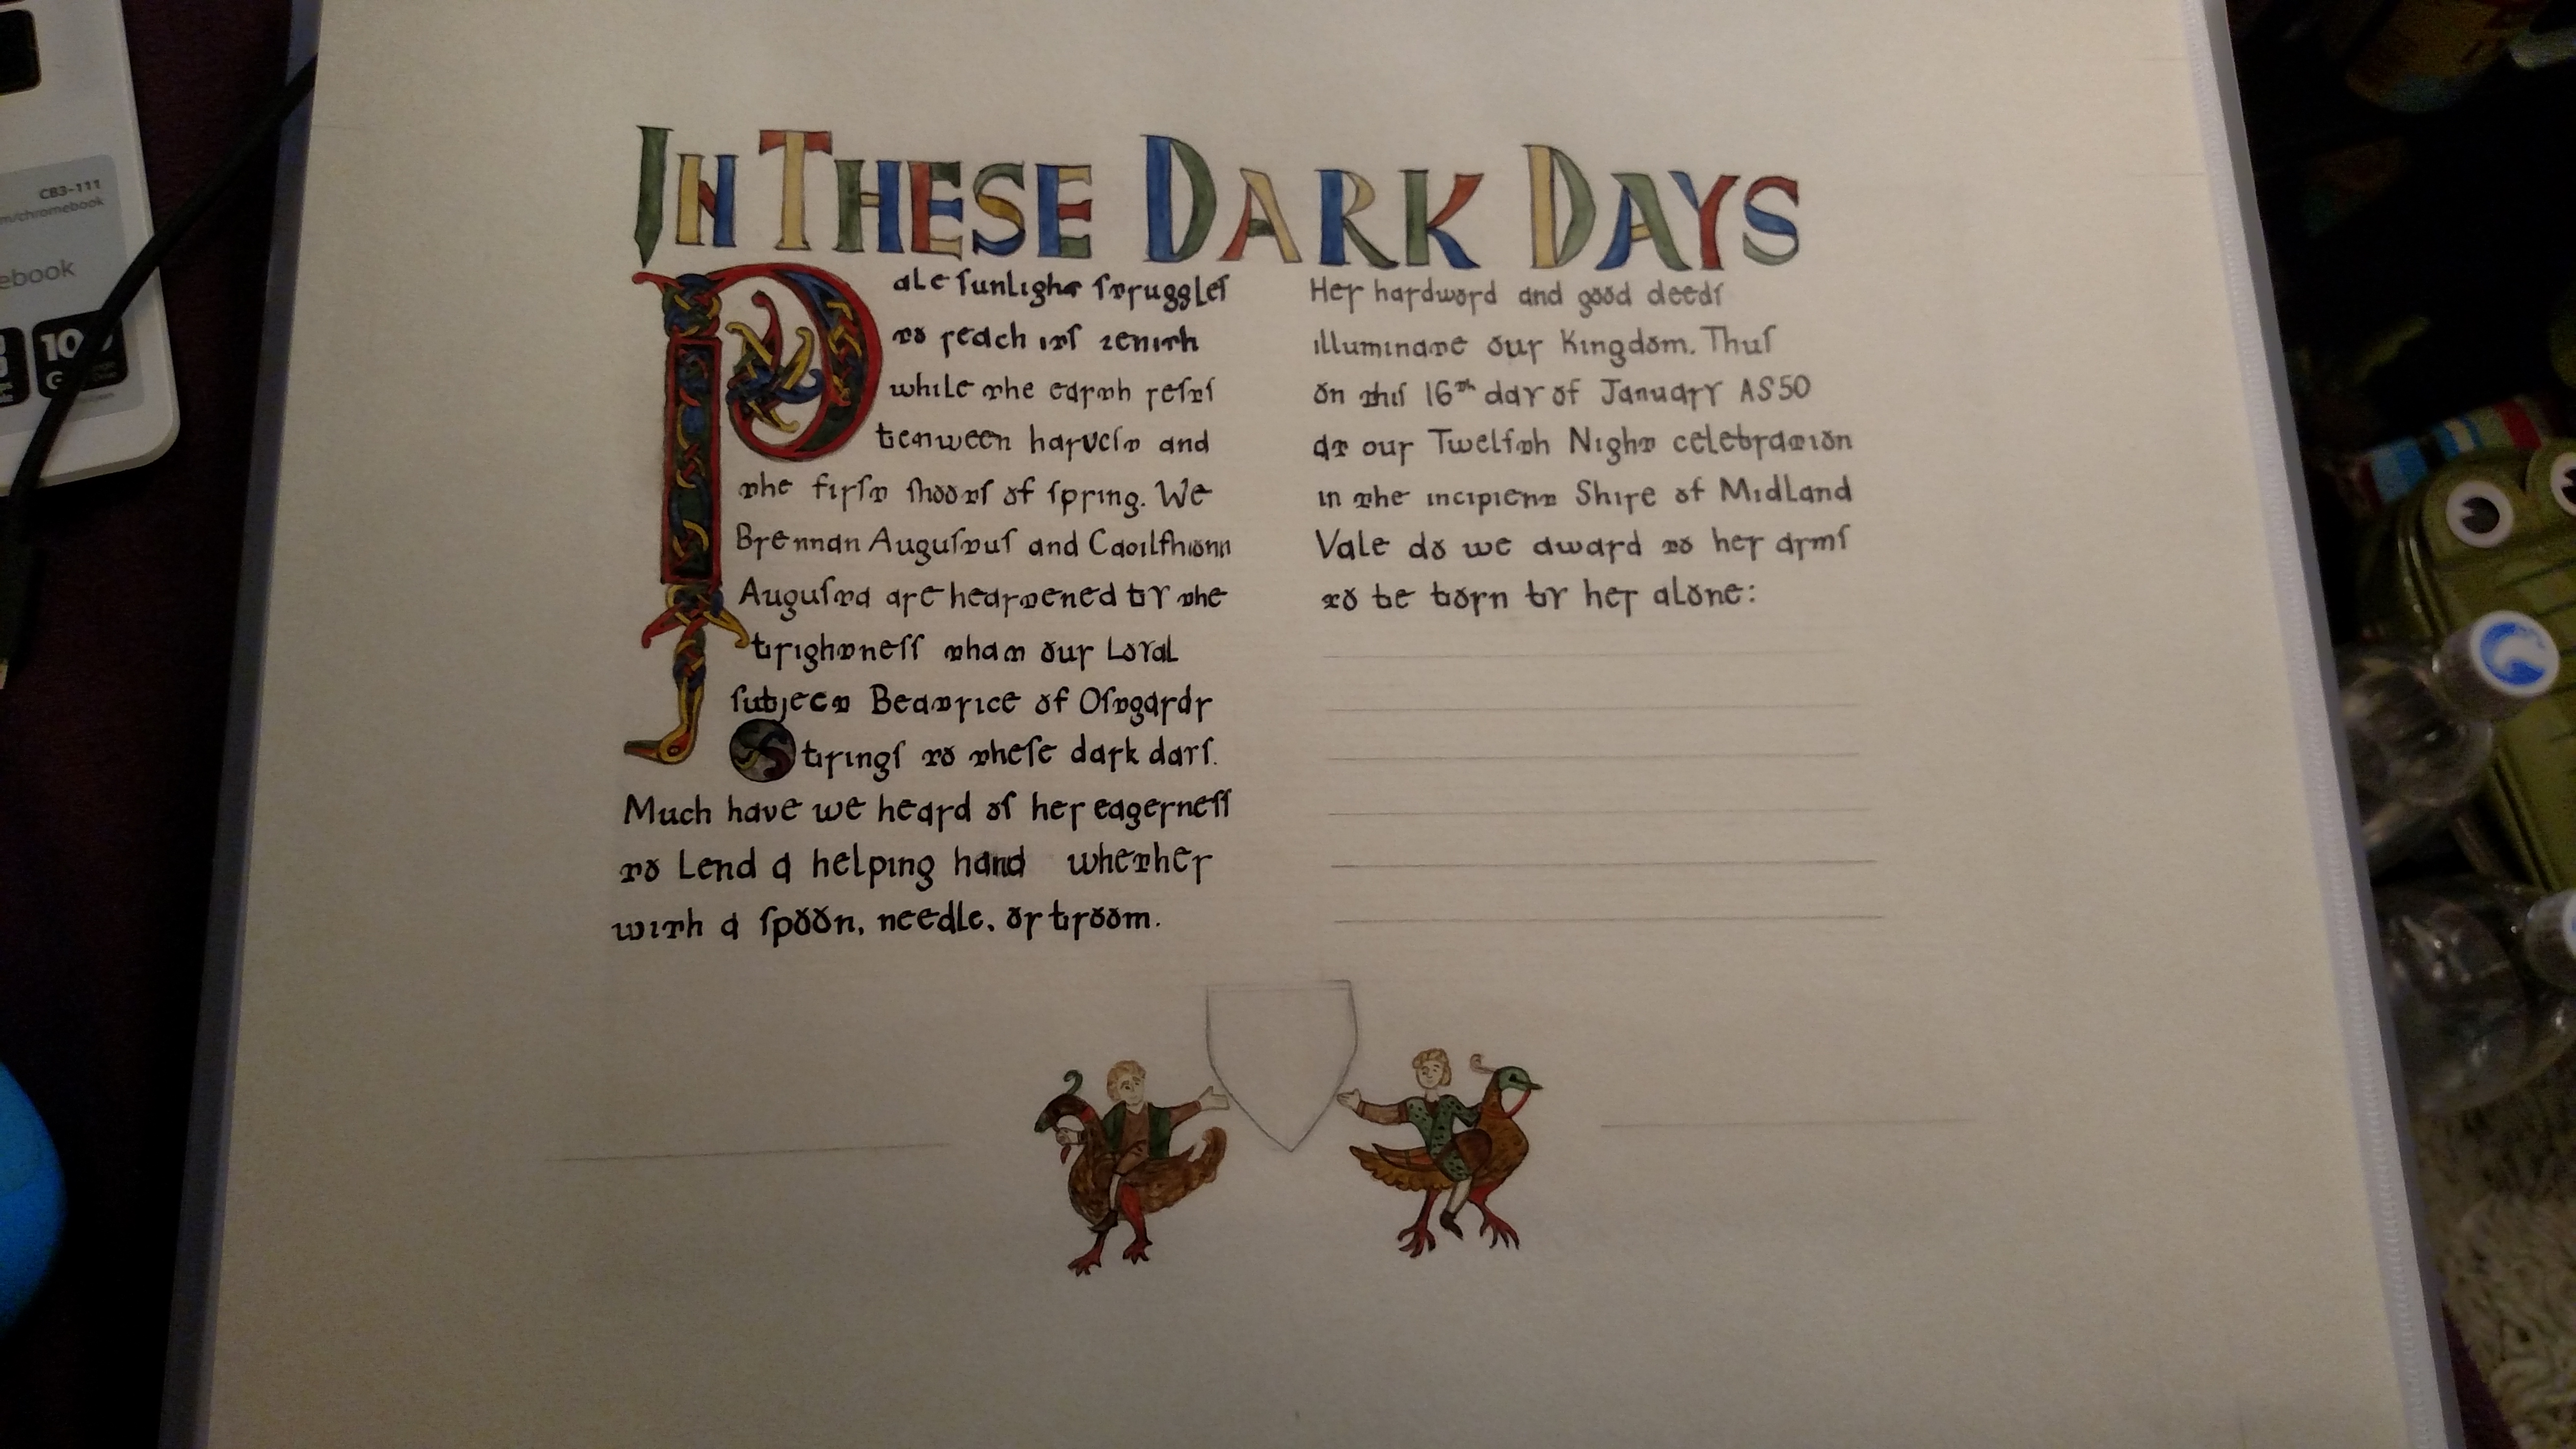 IN THESE DARK DAYS
Pale sunlight struggles
to reach its zenith
while the earth rests
between harvest and
the first shoots of spring. We
Brennan Augustus and Caoilfhionn
Augusta are heartened by the
brightness that our Loyal
subject Beatrice of Ostgardr
brings to these dark days.
Much have we heard of her eagerness
to Lend a helping hand whether
with a spoon, needle, or broom.
Her hardword and good deeds
illuminate our Kingdom. Thus
on this 16th day of January AS50
at our Twelfth Night celebration
in the incipient Shire of Midland
Vale do we award to her arms
to be born by her alone:
CB3-111
m/chromebook
ebook
10